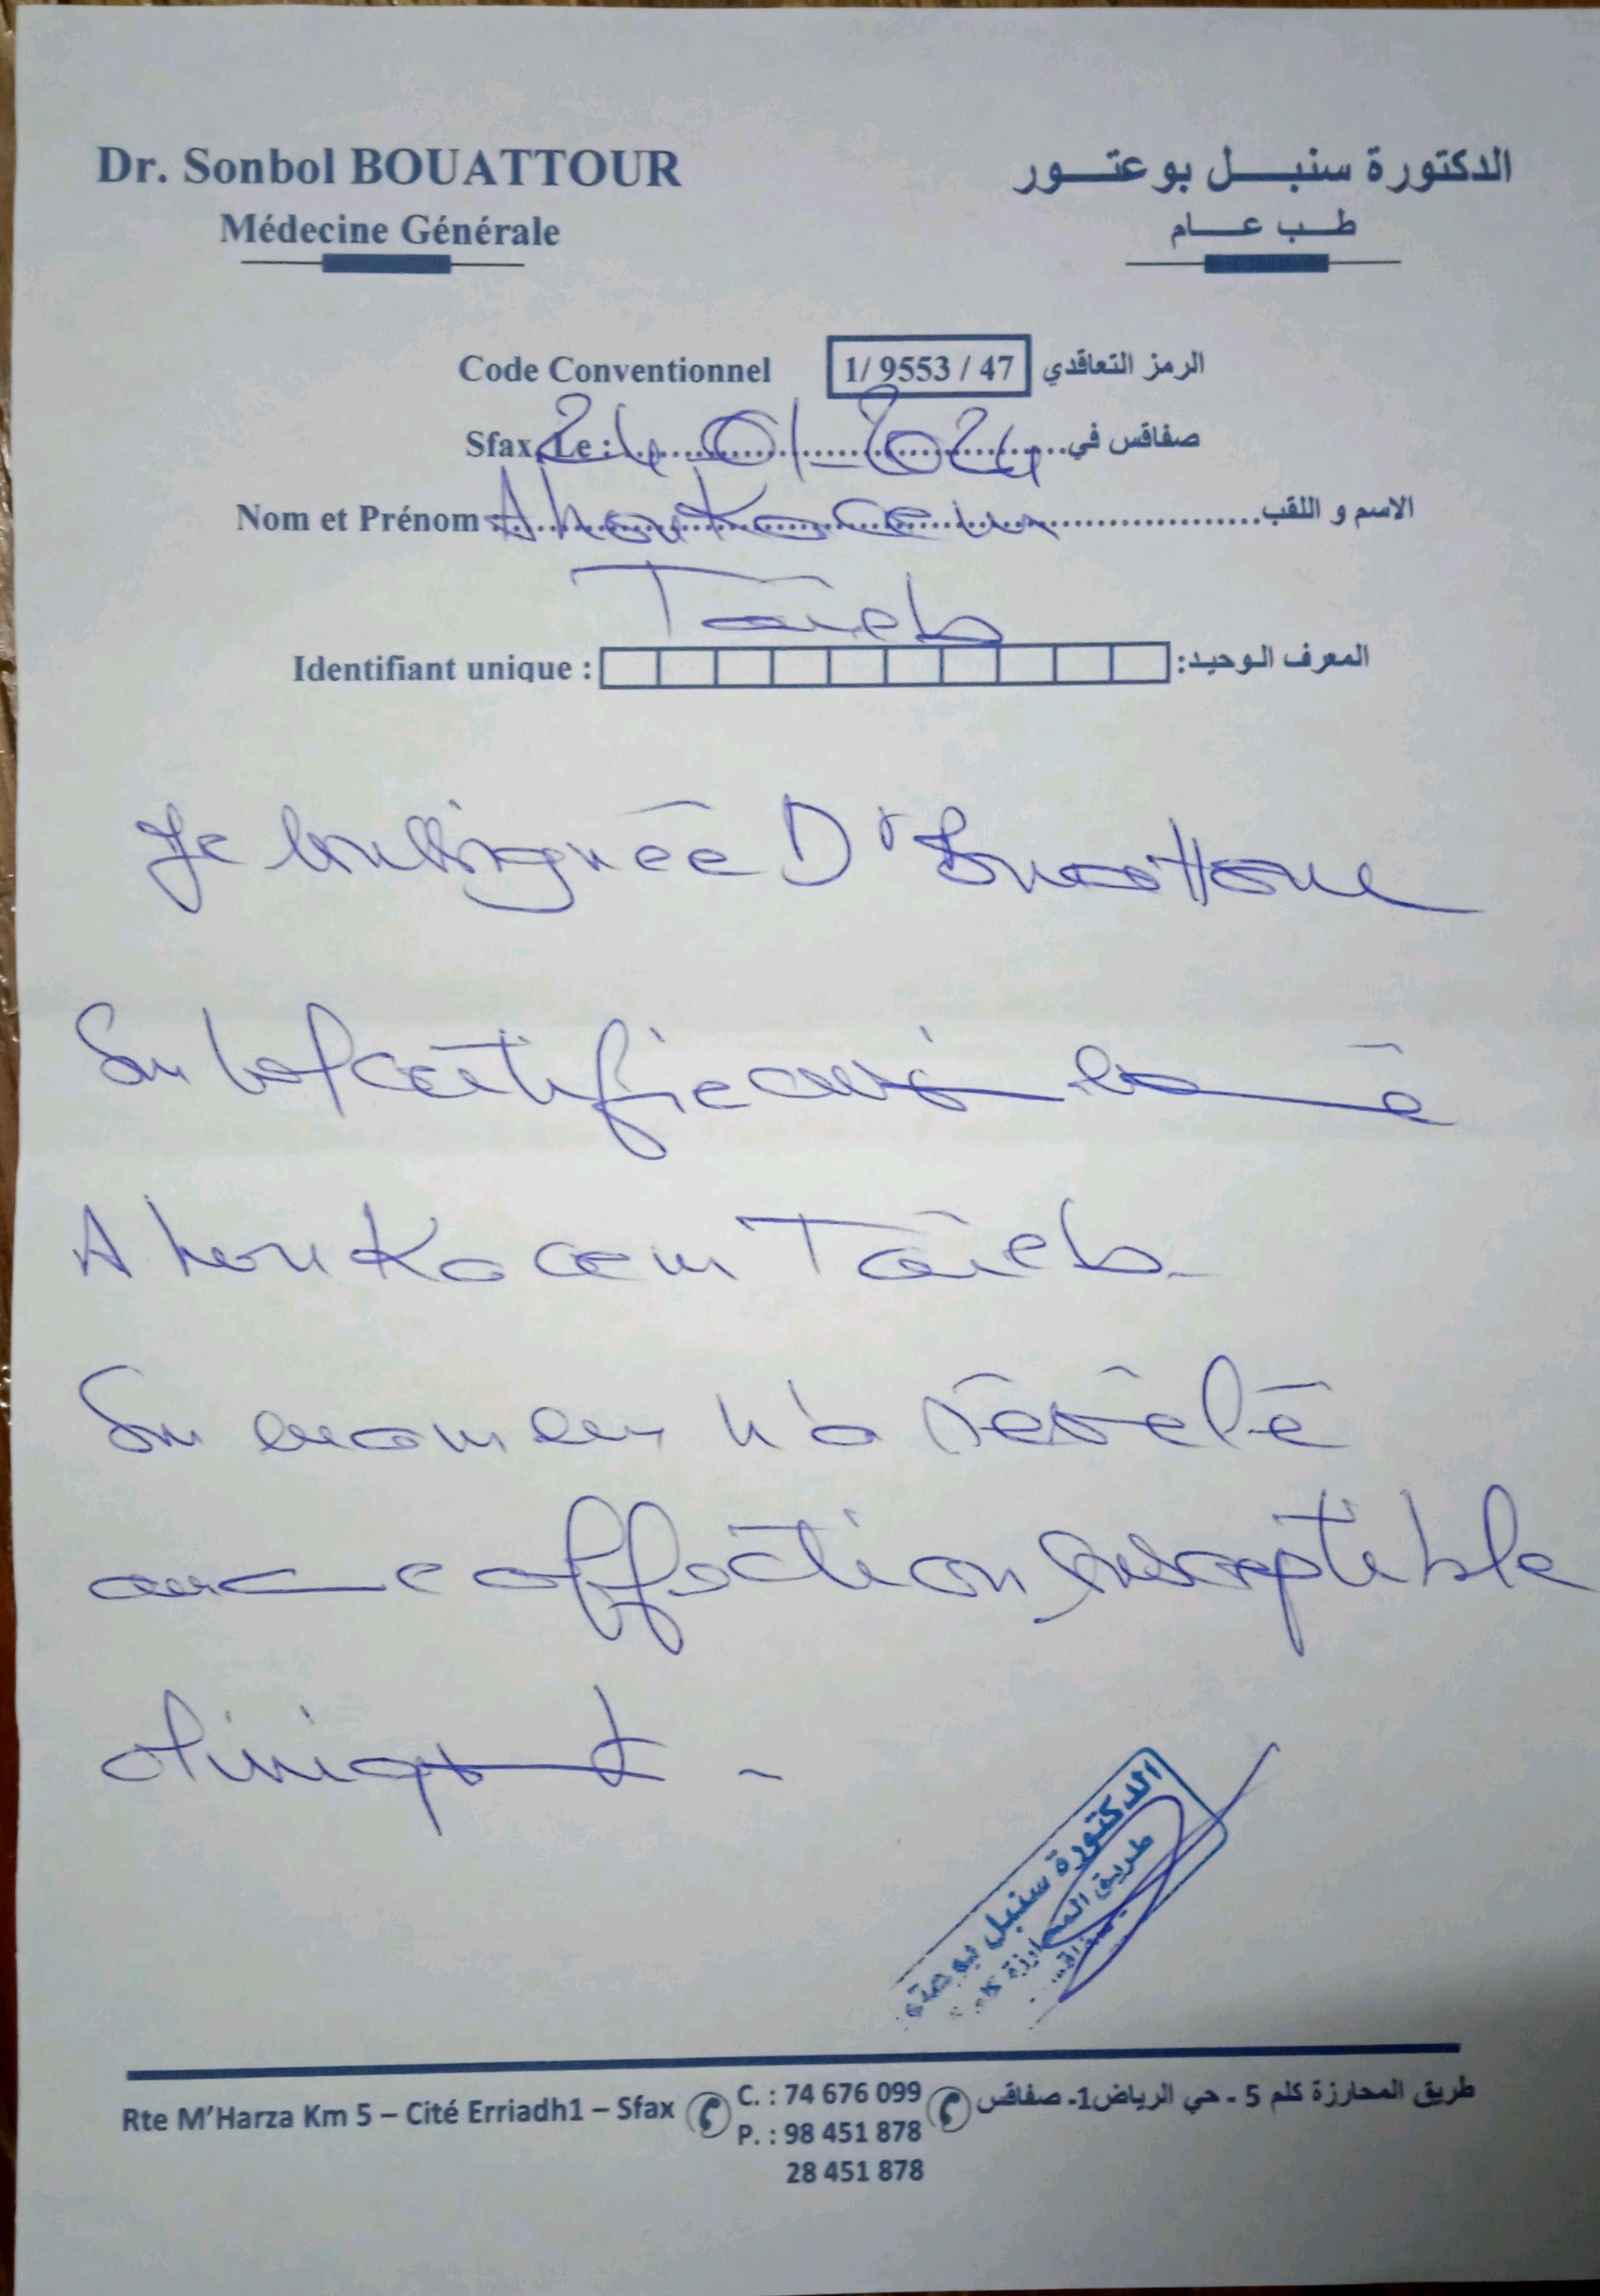 Dr. Sonbol BOUATTOUR
Médecine Générale
الدكتورة سنبل بوعتور
طب عام
Code Conventionnel 1/ 9553 / 47 الرمز التعاقدي
Sfax, Le : 24_01_2024 صفاقس في
Nom et Prénom Ahou Kacem الاسم و اللقب
Taïeb
Identifiant unique : المعرف الوحيد:
Je soussignée Dr Bouattour
Sonbol certifie avoir examiné
Ahou Kacem Taïeb.
Son examen n'a révélé
aucune affection susceptible
cliniquement -
الدكتورة سنبل بوعتور
طريق المحارزة كلم
صفاقس
Rte M'Harza Km 5 – Cité Erriadh1 – Sfax C. : 74 676 099 طريق المحارزة كلم 5 - حي الرياض1- صفاقس
P. : 98 451 878
28 451 878